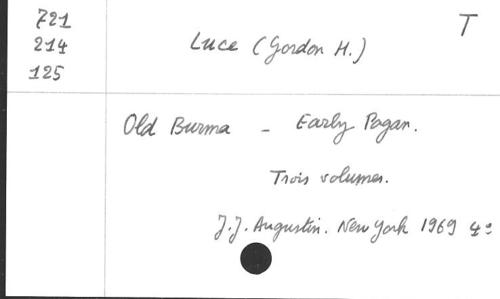 721
214
125
T
Luce (Gordon H.)
Old Burma - Early Pagan.
Trois volumes.
J.J. Augustin. New York 1969 4º